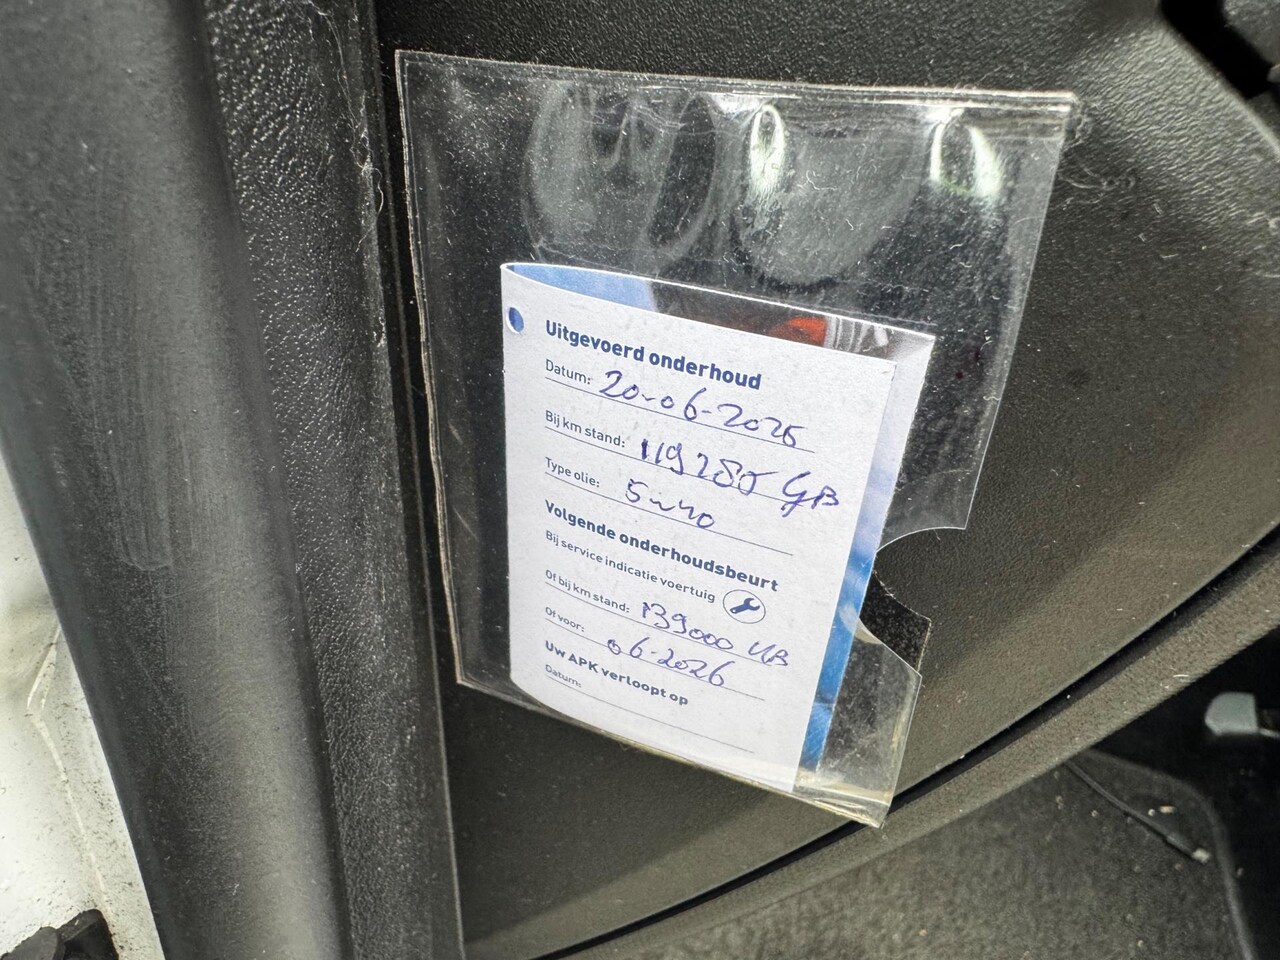 Uitgevoerd onderhoud
Datum: 20-06-2025
Bij km stand: 119285 GB
Type olie: 5w40
Volgende onderhoudsbeurt
Bij service indicatie voertuig
Of bij km stand: 139000 
Of voor: 06-2026
Uw APK verloopt op
Datum: